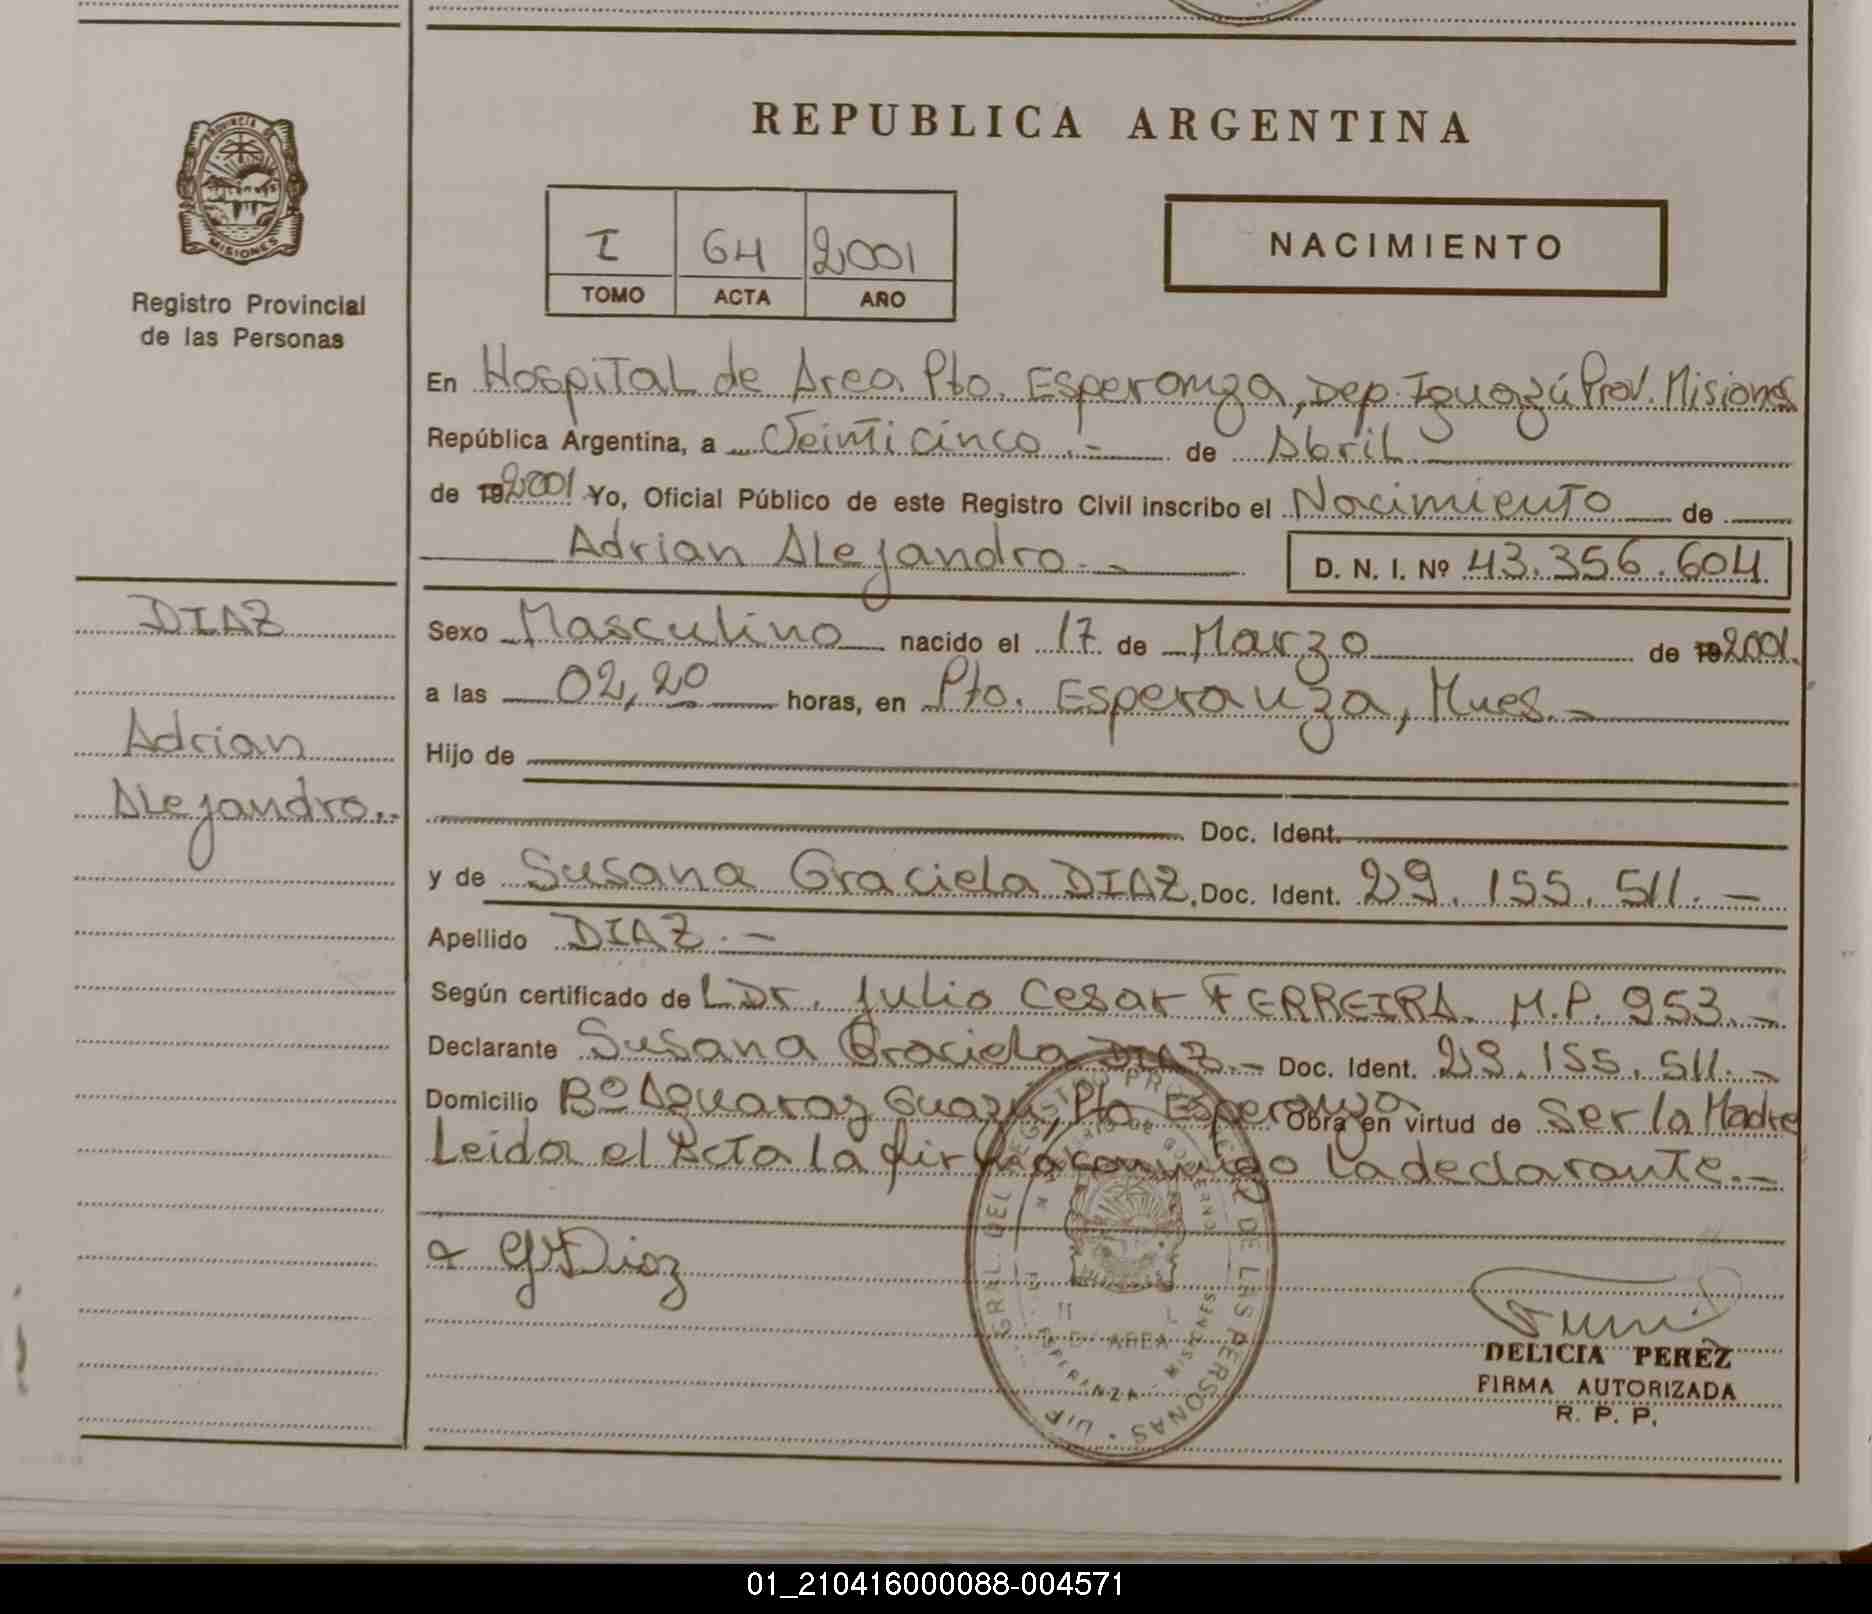 REPUBLICA ARGENTINA
PROVINCIA DE
MISIONES
Registro Provincial
de las Personas
I 64 2001
TOMO ACTA AÑO
NACIMIENTO
En Hospital de Area Pto. Esperanza, Dep. Iguazú Prov. Misiones
República Argentina, a Veinticinco.- de Abril.
de 192001 Yo, Oficial Público de este Registro Civil inscribo el Nacimiento de
Adrian Alejandro.- D. N. I. Nº 43.356.604
DIAZ
Adrian
Alejandro.-
Sexo Masculino nacido el 17 de Marzo de 192001.
a las 02,20 horas, en Pto. Esperanza, Mnes.-
Hijo de
Doc. Ident.
y de Susana Graciela DIAZ. Doc. Ident. 29.155.511.-
Apellido DIAZ.-
Según certificado de L Dr. Julio Cesar FERREIRA. M.P. 953.-
Declarante Susana Graciela DIAZ.- Doc. Ident. 29.155.511.-
Domicilio Bº Aguaray Guazu, Pto Esperanza Obra en virtud de Ser la Madre
Leida el Acta la firma conmigo la declarante.-
Diaz
DE LAS PERSONAS
AREA
ESPERANZA - MISIONES
DELICIA PEREZ
FIRMA AUTORIZADA
R. P. P.
01_210416000088-004571